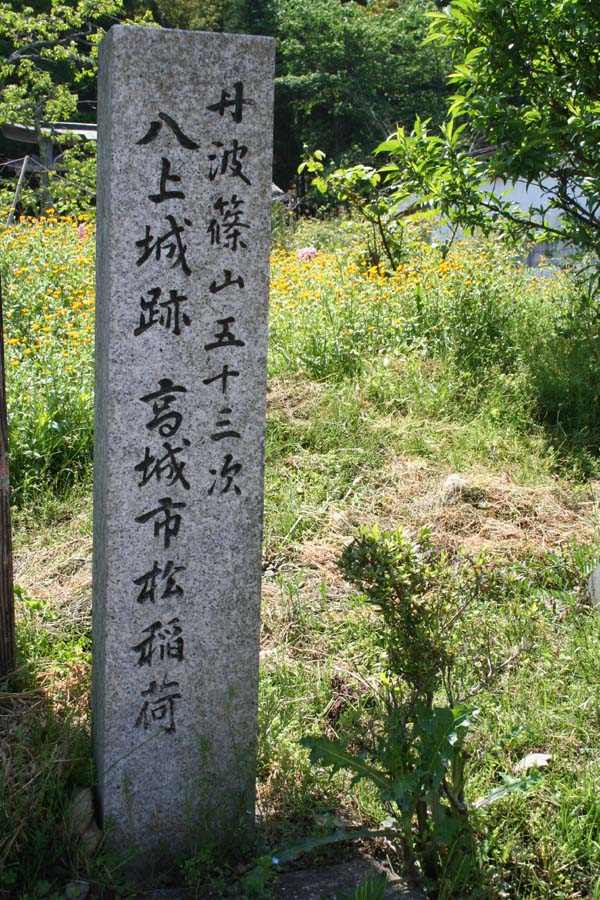 丹波篠山五十三次
八上城跡 高城市松稲荷